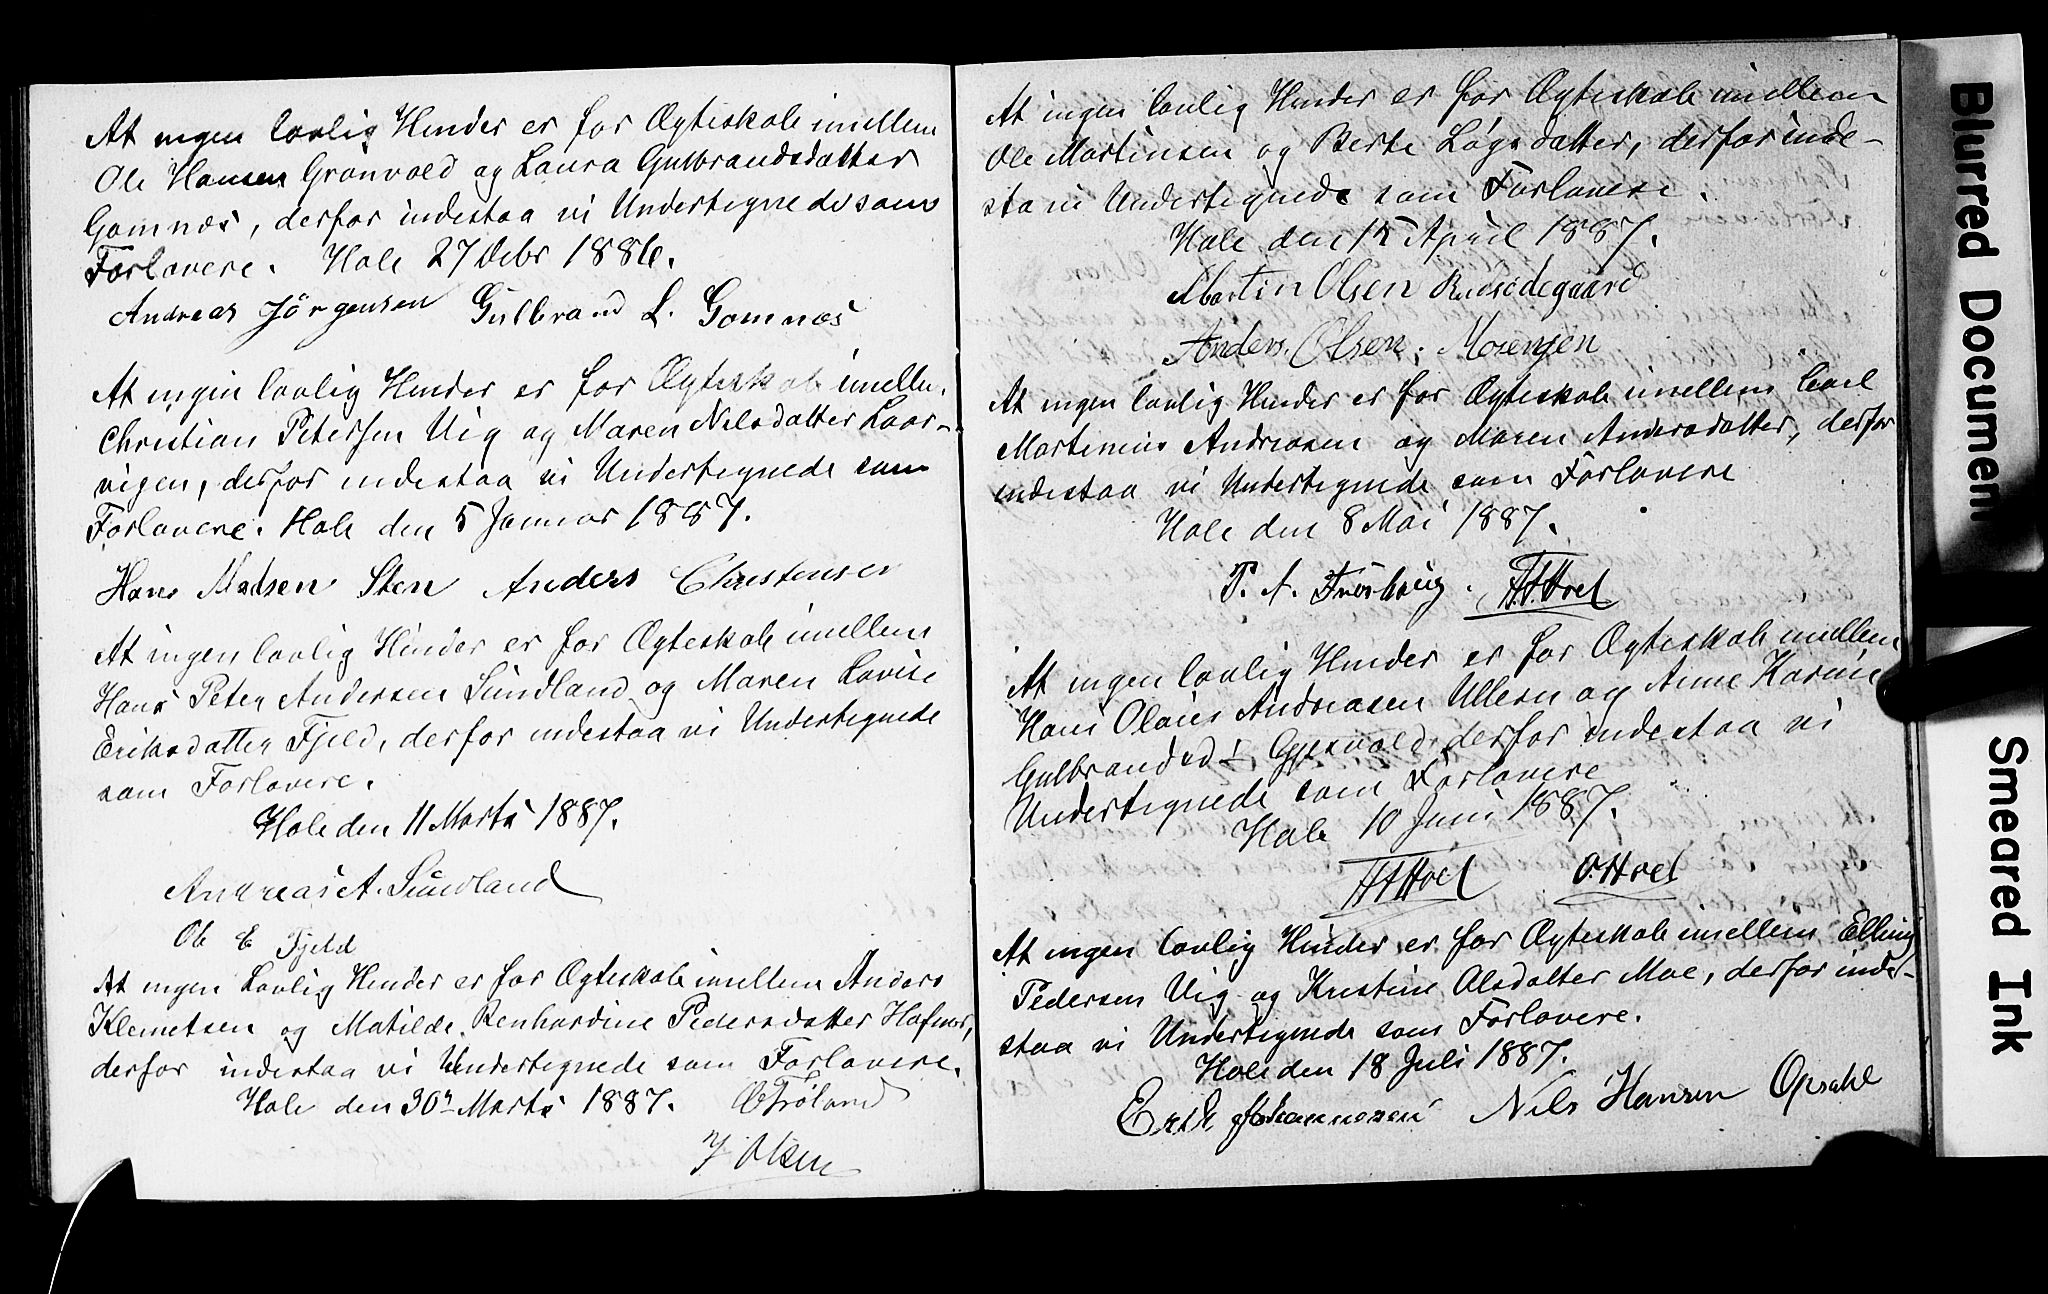 At ingen lovlig Hinder er for Ægteskab imellem
Ole Hansen Grønvold og Laura Gulbrandsdatter
Gomnæs, derfor indestaa vi Undertegnede som
Forlovere. Hole 27 Debr 1886.
Andreas Jörgensen Gulbrand L. Gomnæs
At ingen lovlig Hinder er for Ægteskab imellem
Christian Petersen Vig og Maren Nilsdatter Laar-
vigen, derfor indestaa vi Undertegnede som
Forlovere. Hole den 5 Januar 1887.
Hans Madsen Sten Anders Christensen
At ingen lovlig Hinder er for Ægteskab imellem
Hans Peter Andersen Sundland og Maren Lovise
Eriksdatter Fjeld, derfor indestaa vi Undertegnede
som Forlovere.
Hole den 11 Marts 1887.
Andreas A. Sundland
Ole E Fjeld
At ingen Lovlig Hinder er for Ægteskab imellem Anders
Klemetsen og Matilde Renhardine Pedersdatter Hafnor,
derfor indestaa vi Undertegnede som Forlovere.
Hole den 30te Marts 1887. O Frøland
J Olsen
At ingen lovlig Hinder er for Ægteskab imellem
Ole Martinsen og Berte Løgsdatter, derfor inde-
sta vi Undertegnede som Forlovere.
Hole den 12 April 1887.
Martin Olsen Rudsødegaard
Anders Olsen Moengen
At ingen lovlig Hinder er for Ægteskab imellem Carl
Martinius Andreasen og Maren Andersdatter, derfor
indestaa vi Undertegnede som Forlovere
Hole den 8 Mai 1887.
P. A. Frøshaug. H. H. Hoel
At ingen lovlig Hinder er for Ægteskab imellem
Hans Olaies Andreasen Ullern og Anne Karine
Gulbrandsd= Gjesvold, derfor indestaa vi
Undertegnede som Forlovere
Hole 10 Juni 1887.
H H Hoel O. Hoel
At ingen lovlig Hinder er for Ægteskab imellem Elling
Pedersen Vig og Kristine Olsdatter Moe, derfor inde-
staa vi Undertegnede som Forlovere.
Hole den 18 Juli 1887.
Erik Johannesen Nils Hansen Opsahl
Blurred Document
Smeared Ink